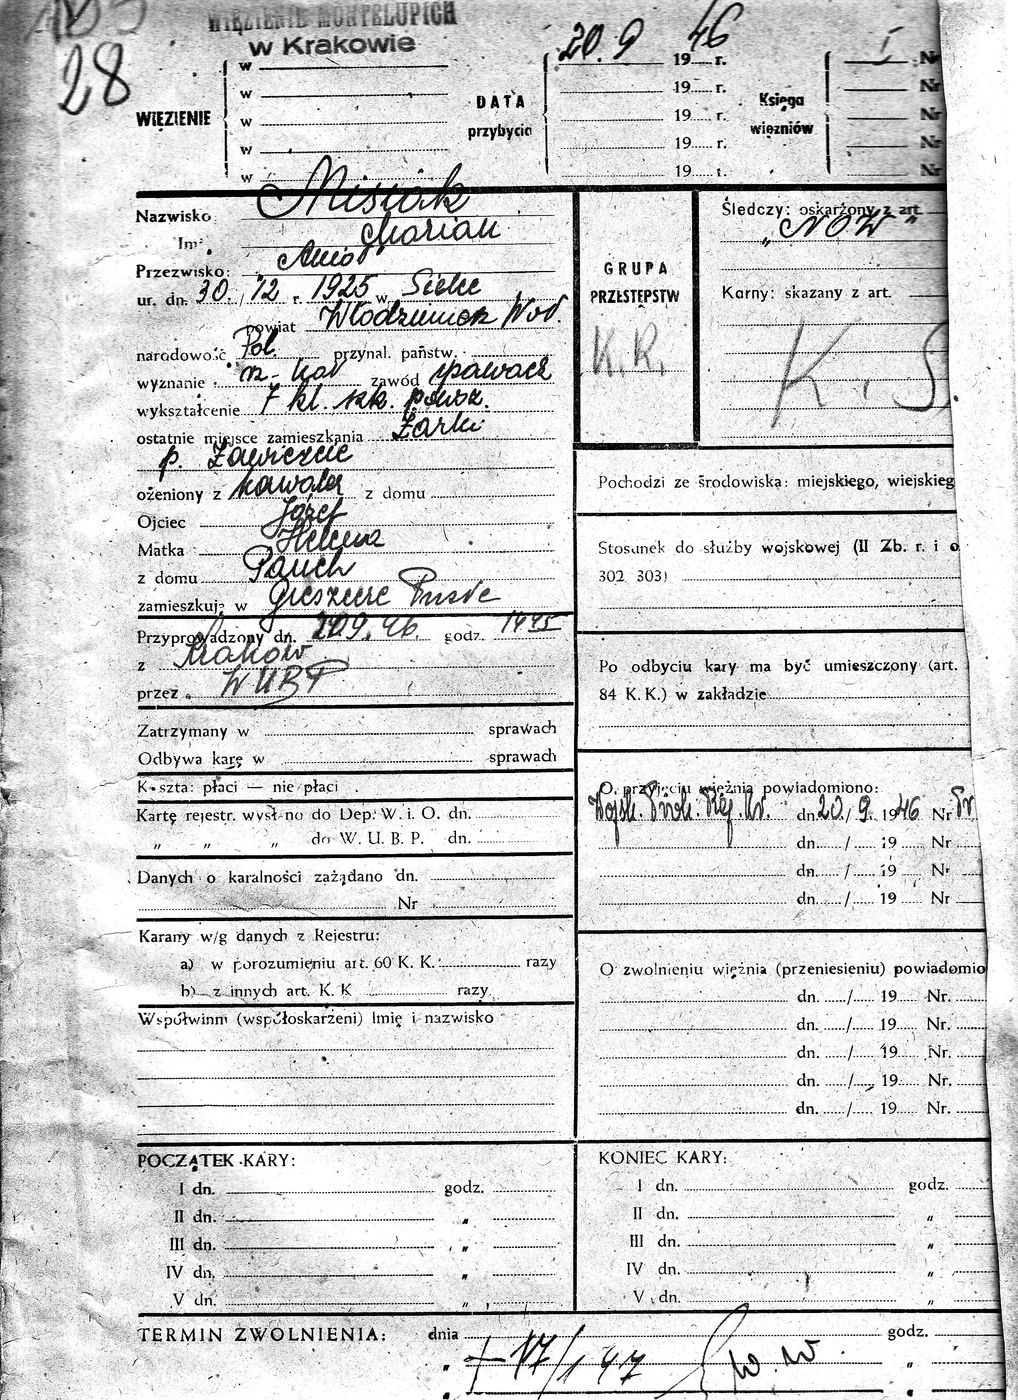 28
WIĘZIENIE MONTELUPICH
w Krakowie
WIĘZIENIE
w
w
w
w
w
DATA
przybycia
20.9 1946 r.
19 r.
19 r.
19 r.
19 r.
Księga
więzniów
I Nr
Nr
Nr
Nr
Nr
Nazwisko Misiak
Imię Marian
Przezwisko: Anioł
ur. dn. 30./12 r. 1925 w Sielec
powiat Włodzimierz Woł.
narodowość Pol. przynal. państw.
wyznanie rz-kat zawód spawacz
wykształcenie 7 kl. szk. powsz.
ostatnie miejsce zamieszkania Żarki
p. Zawiercie
ożeniony z kawaler z domu
Ojciec Józef
Matka Helena
z domu Pauch
zamieszkuję w Puste
Przyprowadzony dn. 20.9.46 godz. 1445
z Kraków
przez WUBP
Zatrzymany w sprawach
Odbywa karę w sprawach
Koszta: płaci — nie płaci
Kartę rejestr. wysłano do Dep. W. i O. dn.
„ „ „ do W. U. B. P. dn.
Danych o karalności zażądano dn.
Nr
Karany w/g danych z Rejestru:
a) w porozumieniu art. 60 K. K. razy
b) z innych art. K. K razy
Współwinni (współoskarżeni) Imię i nazwisko
GRUPA
PRZESTĘPSTW
K.R.
Śledczy: oskarżony z art.
„NOW"
Karny: skazany z art.
K. S.
Pochodzi ze środowiska: miejskiego, wiejskieg
Stosunek do służby wojskowej (II Zb. r. i o
302 303)
Po odbyciu kary ma być umieszczony (art.
84 K. K.) w zakładzie
O przyjęciu więźnia powiadomiono:
Wojsk. Prok. Rej. Kr. dn. 20/9. 1946 Nr Pr
dn. / 19 Nr
dn. / 19 Nr
dn. / 19 Nr
O zwolnieniu więźnia (przeniesieniu) powiadomio
dn. / 19 Nr.
dn. / 19 Nr.
dn. / 19 Nr.
dn. / 19 Nr.
dn. / 19 Nr.
POCZĄTEK KARY:
I dn. godz.
II dn. „
III dn. „
IV dn. „
V dn. „
KONIEC KARY:
I dn. godz.
II dn. „
III dn. „
IV dn. „
V dn. „
TERMIN ZWOLNIENIA: dnia godz.
„ + 17/1 47 „